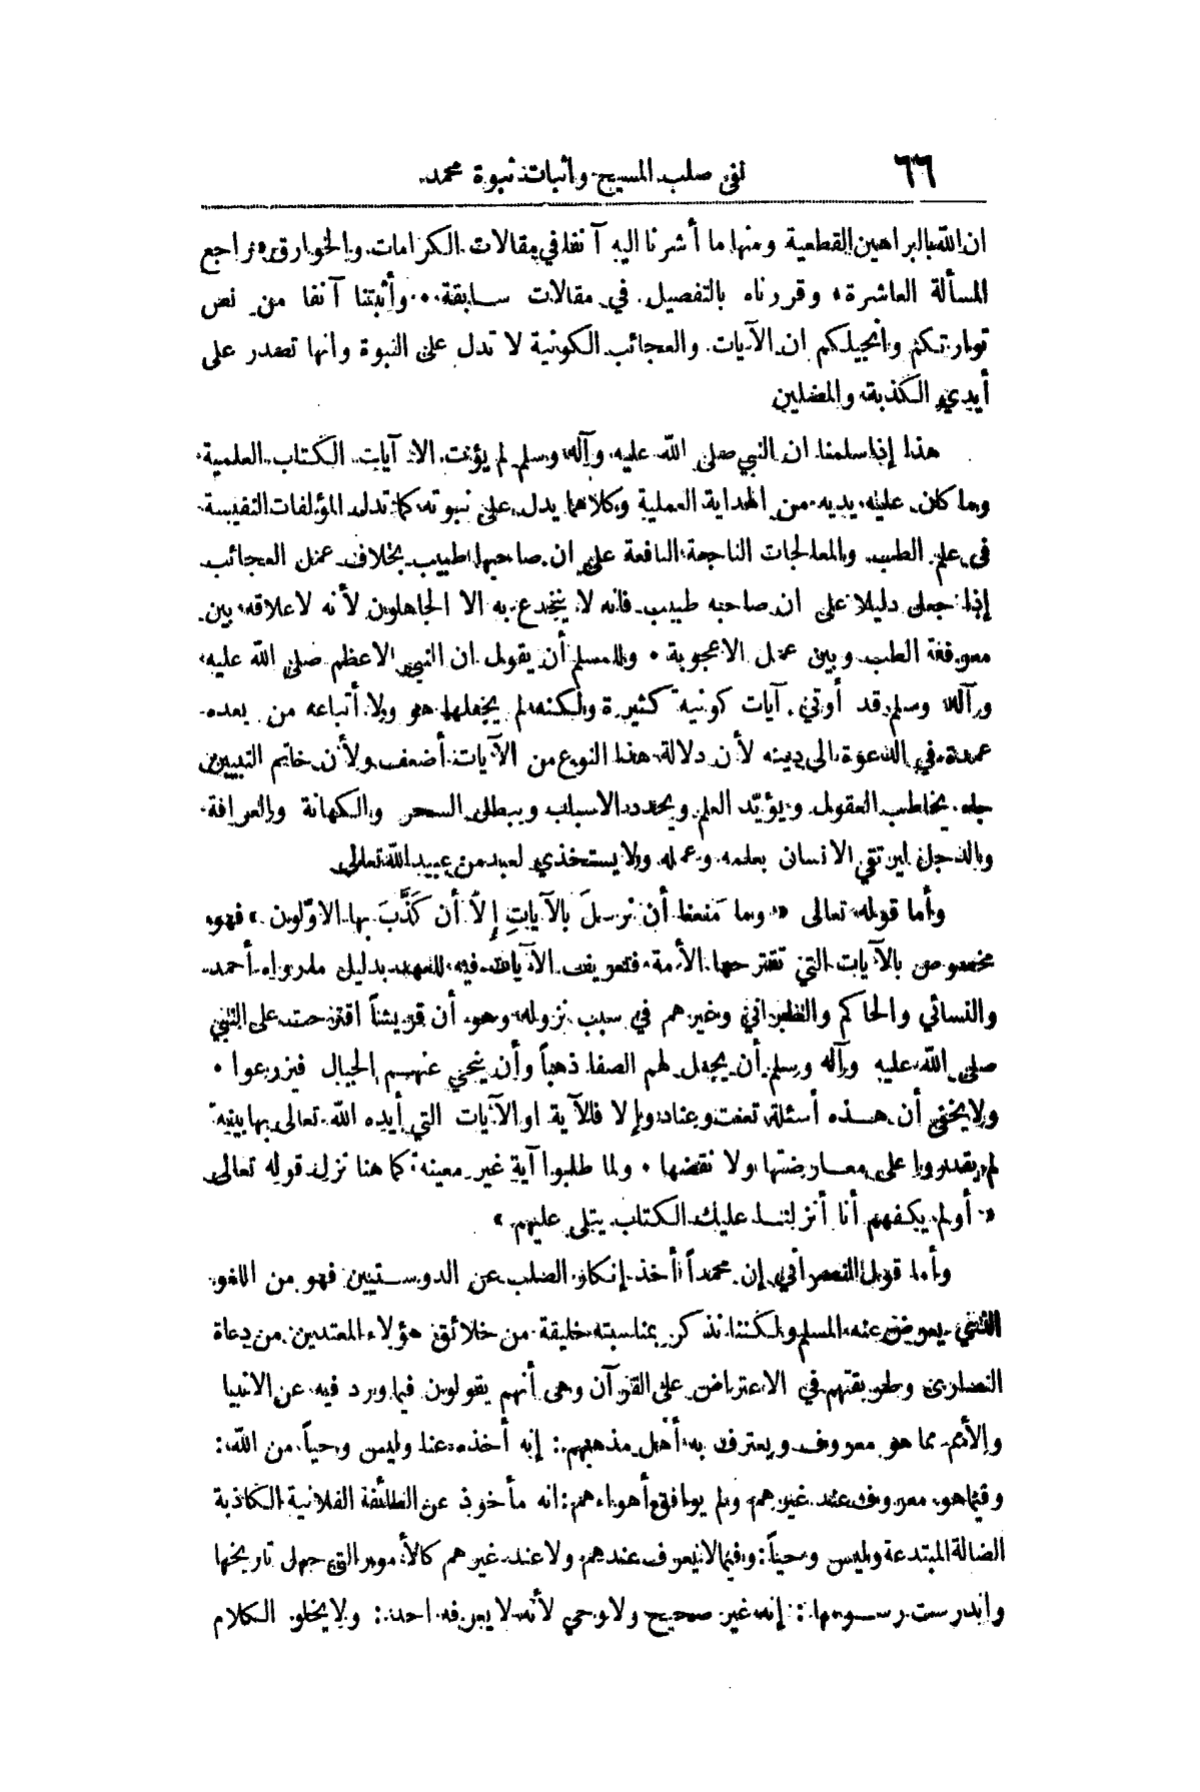 ٦٦ نفي صلب المسيح واثبات نبوة محمد
ان الله بالبراهين القطعية ومنها ما أشرنا اليه آنفا في مقالات الكرامات والخوارق « راجع
المسألة العاشرة » وقررناه بالتفصيل في مقالات سابقة • وأثبتنا آنفا من نص
توراتكم وانجيلكم ان الآيات والعجائب الكونية لا تدل على النبوة وانها تصدر على
أيدي الكذبة والمضلين
هذا إذا سلمنا ان النبي صلى الله عليه وآله وسلم لم يؤت الا آيات الكتاب العلمية
وما كان على يديه من الهداية العملية وكلاهما يدل على نبوته كما تدل المؤلفات النفيسة
في علم الطب والمعالجات الناجحة النافعة على ان صاحبها طبيب بخلاف عمل العجائب
إذا جعل دليلا على ان صاحبه طبيب فانه لا ينخدع به الا الجاهلون لأنه لا علاقة بين
معرفة الطب وبين عمل الاعجوبة • وللمسلم أن يقول ان النبي الاعظم صلى الله عليه
وآله وسلم قد أوتي آيات كونية كثيرة ولكنه لم يجعلها هو ولا أتباعه من بعده
عمدة في الدعوة الى دينه لأن دلالة هذا النوع من الآيات أضعف ولأن خاتم النبيين
جاء يخاطب العقول ويؤيد العلم ويحدد الاسباب ويبطل السحر والكهانة والعرافة
والدجل ليرتقي الانسان بعلمه وعمله ولا يستخذي لعبد من عبيد الله تعالى
وأما قوله تعالى « وما مَنعنا أن نرسلَ بالآياتِ إلاّ أن كَذَّبَ بها الاوّلون » فهو
مخصوص بالآيات التي تقترحها الأمة فتعريف الآيات فيه للعهد بدليل ما رواه أحمد
والنسائي والحاكم والطبراني وغيرهم في سبب نزوله وهو أن قريشاً اقترحت على النبي
صلى الله عليه وآله وسلم أن يجعل لهم الصفا ذهباً وأن ينحي عنهم الجبال فيزرعوا •
ولا يخفى أن هذه أسئلة تعنت وعناد وإلا فالآية او الآيات التي أيده الله تعالى بها بينة
لم يقدروا على معارضتها ولا نقضها • ولما طلبوا آية غير معينة كما هنا نزل قوله تعالى
« أو لم يكفهم أنا أنزلنا عليك الكتاب يتلى عليهم »
وأما قول النصراني إن محمداً أخذ إنكار الصلب عن الدوستيين فهو من اللغو
الذي يعرض عنه المسلم ولكننا نذكر بمناسبته خليقة من خلائق هؤلاء المعتدين من دعاة
النصارى وطريقتهم في الاعتراض على القرآن وهي أنهم يقولون فيما ورد فيه عن الانبيا
والأمم مما هو معروف ويعترف به أهل مذهبهم : إنه أخذه عنا وليس وحياً من الله :
وفيما هو معروف عند غيرهم ولم يوافق أهواءهم : انه مأخوذ عن الطائفة الفلانية الكاذبة
الضالة المبتدعة وليس وحياً : وفيما لا يُعرف عندهم ولا عند غيرهم كالأمور التي جهل تاريخها
واندرست رسومها : إنه غير صحيح ولا وحي لأنه لا يعرفه احد : ولا يخلو الكلام